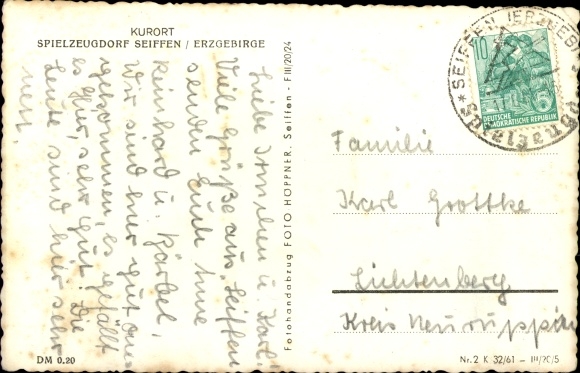 KURORT
SPIELZEUGDORF SEIFFEN / ERZGEBIRGE
Liebe Irmchen u. Karl!
Viele Grüße aus Seiffen
senden Euch Anne
Reinhard u. Bärbel.
Wir sind hier gut an-
gekommen, es gefällt
es hier sehr gut. Die
Leute sind hier sehr
nett
DM 0.20
Fotohandabzug FOTO HÖPPNER, Seiffen - F III/20/24
SEIFFEN (ERZGEB
Spielzeug
10
5
DEUTSCHE
DEMOKRATISCHE REPUBLIK
Familie
Karl Grottke
Lichtenberg
Kreis Neuruppin
Nr. 2 K 32/61 — III/20/5